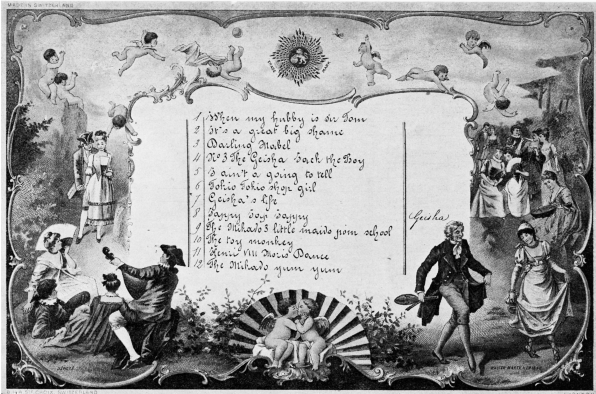 MADE IN SWITZERLAND
1 When my hubby is Sir Tom
2 It's a great big shame
3 Darling Mabel
4 No 3 The Geisha Jack the Boy
5 I ain't a going to tell
6 Tokio Tokio Shop girl
7 Geisha's life
8 Happy Joy Happy
9 The Mikado 3 little maids from school
10 The toy monkey
11 Henri VIII Moris Dance
12 The Mikado yum yum
Geisha